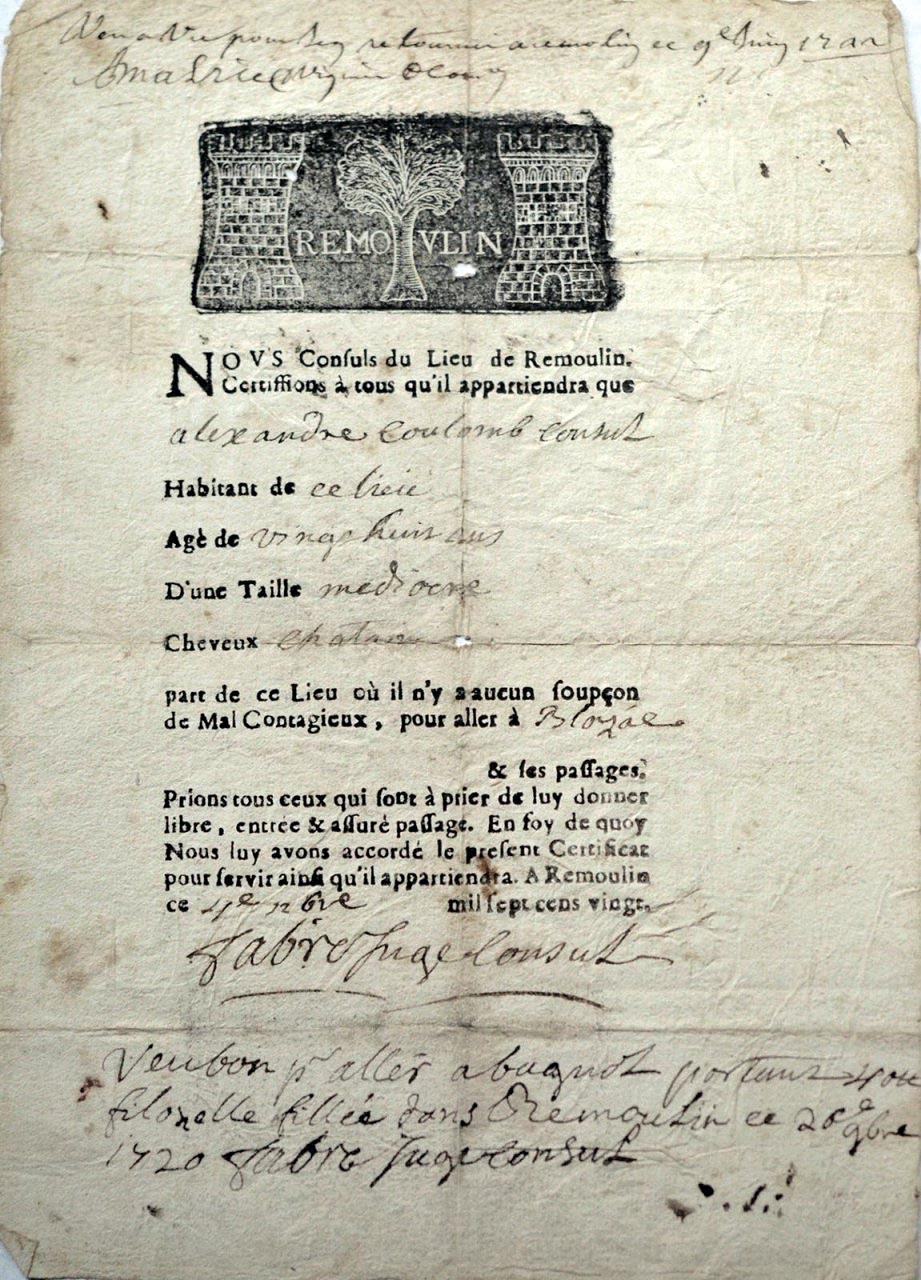 Veu pour s'en retourner a remolin ce 9e Juin
REMOVLIN
NOVS Conſuls du Lieu de Remoulin.
Certiffions à tous qu'il appartiendra que
alexandre Coulomb Consul
Habitant de ce lieu
Agè de vingt huit ans
D'une Taille mediocre
Cheveux chatan
part de ce Lieu où il n'y a aucun ſoupçon
de Mal Contagieux, pour aller à Blozac
& ſes paſſages.
Prions tous ceux qui ſont à prier de luy donner
libre, entrée & aſſuré paſſage. En foy de quoy
Nous luy avons accordé le preſent Certificat
pour ſervir ainſi qu'il appartiendra. A Remoulin
ce 4e mil ſept cens vingt.
fabre Juge Consul
Veu bon pr aller a bagnol portant
filozelle fillée dans Remoulin ce 26e 9bre
1720 fabre Juge Consul